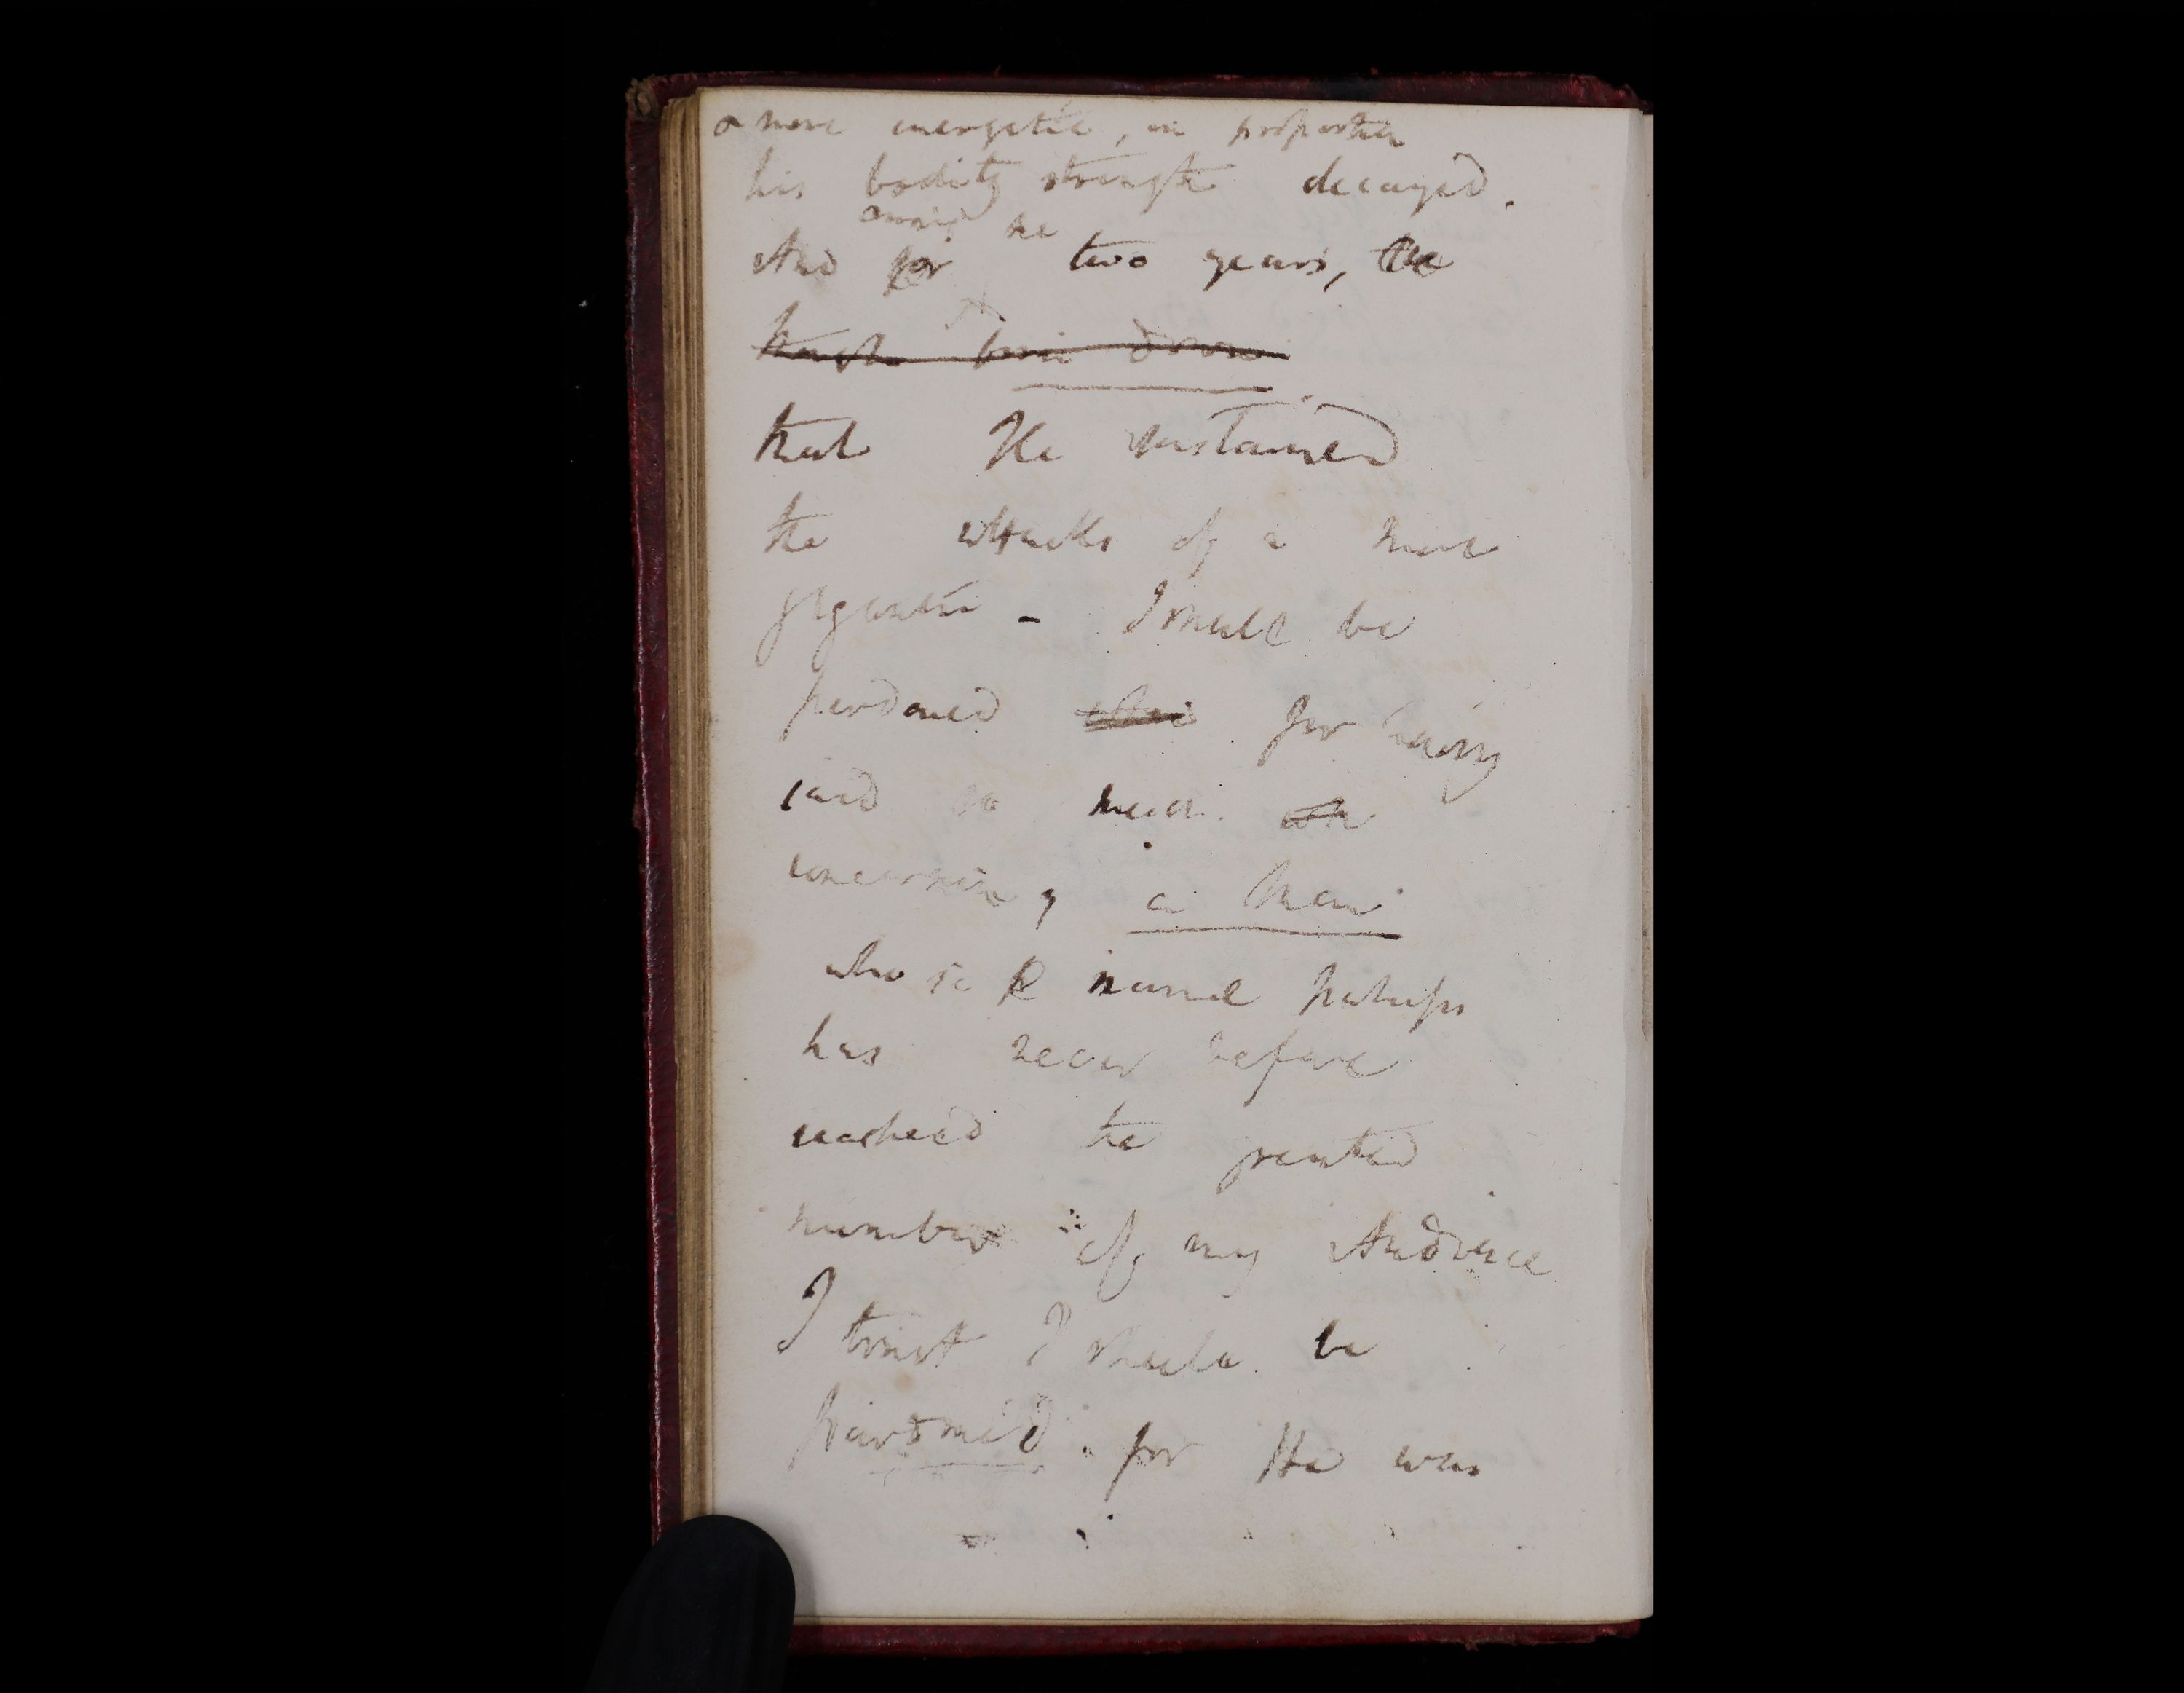 & more energetic, in proportion
his bodily strength decayed.
he
And for two years, the
that He sustained
the attacks of a more
gigantic - I shall be
pardoned for having
said so much
concerning a Man
whose name perhaps
has never before
reached the greatest
number of my Audience
I trust I shall be
pardoned. for He was